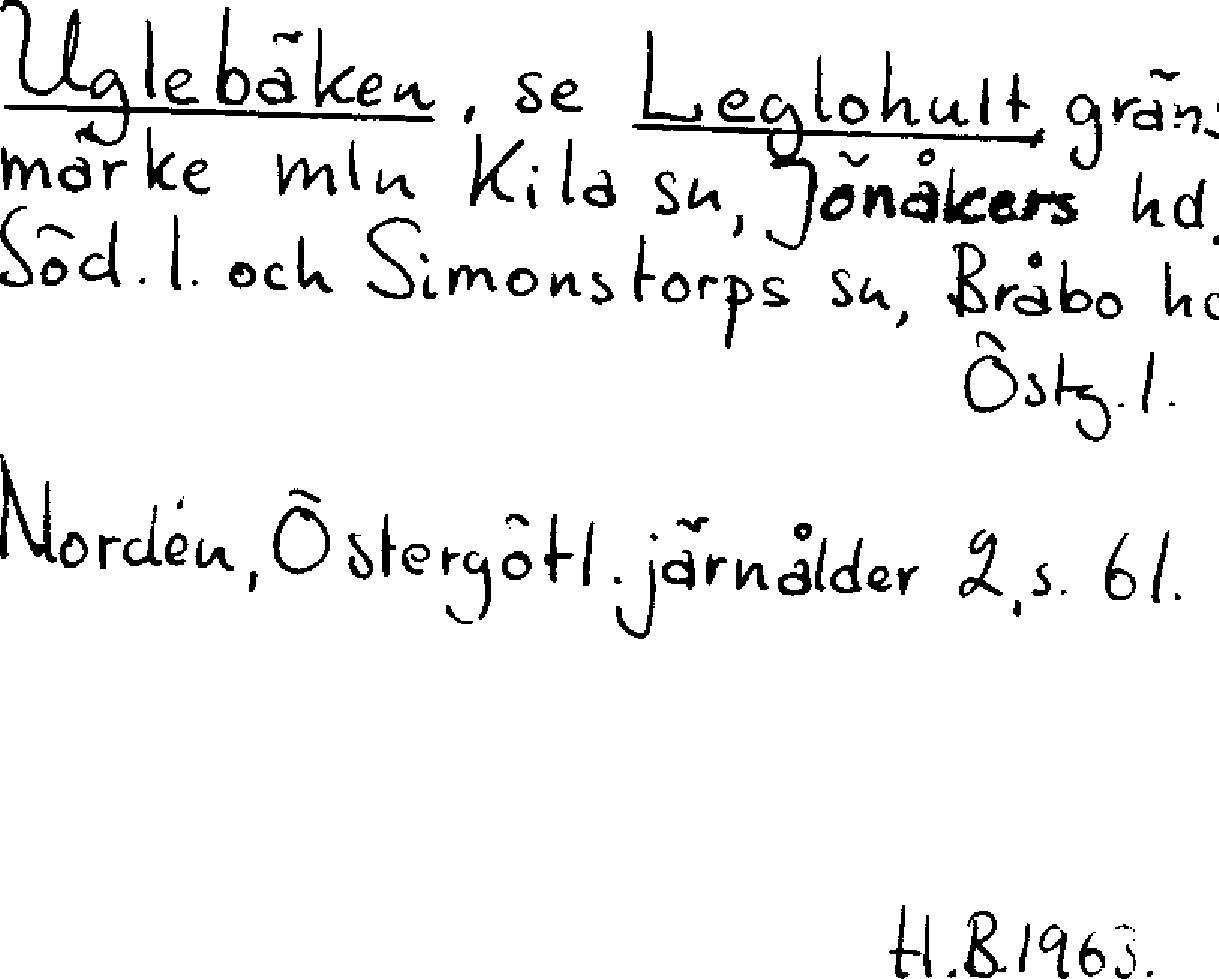 Uglebäken, se Leglohult gräns
märke mln Kila sn, Jönåkers hd,
Söd. l. och Simonstorps sn, Bråbo hd
Östg. l.
Nordén, Östergötl. järnålder 2, s. 61.
H.B. 1963.